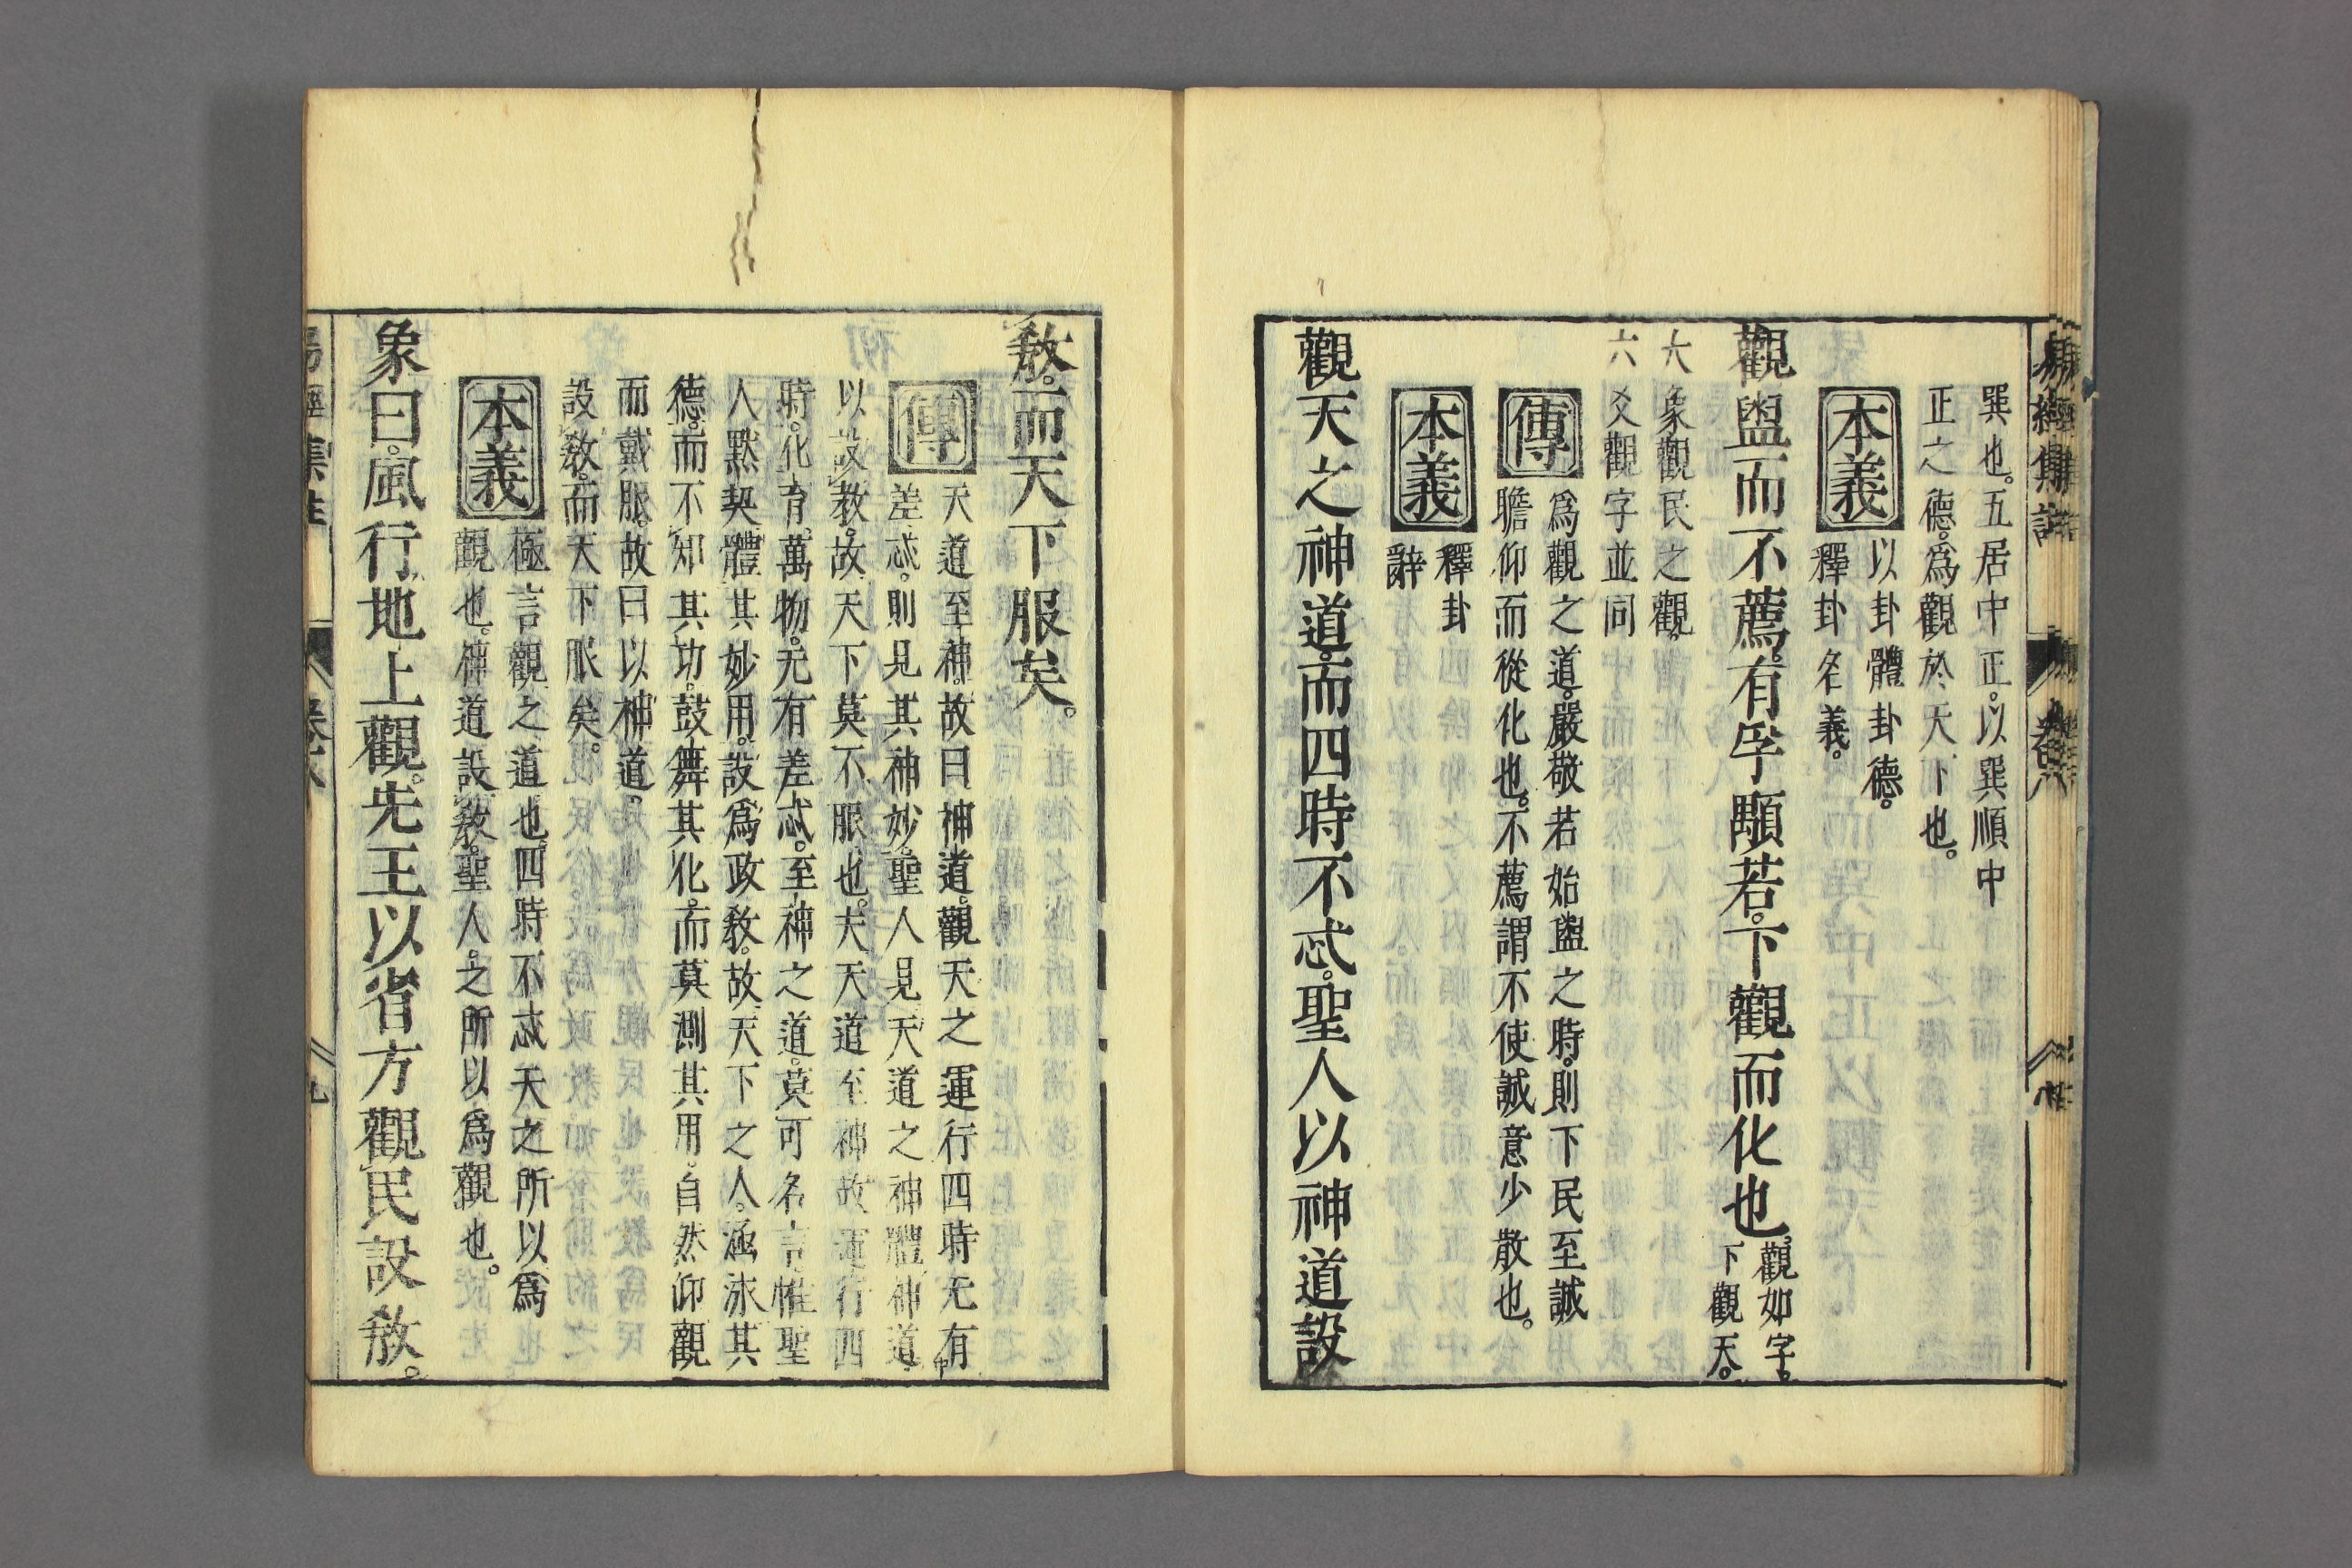 巽也。五居中正。以巽順中
正之德。爲觀於天下也。
本義
以卦體卦德。
釋卦名義。
觀盥而不薦。有孚顒若。下觀而化也。
觀如字。
下觀天。
大象觀民之觀。
六爻觀字並同
傳
爲觀之道。嚴敬若始盥之時。則下民至誠
瞻仰而從化也。不薦謂不使誠意少散也。
本義
釋卦
辭
觀天之神道。而四時不忒。聖人以神道設
敎。而天下服矣。
傳
天道至神。故曰神道。觀天之運行四時无有
差忒。則見其神妙。聖人見天道之神。體神道
以設敎。故天下莫不服也。夫天道至神。故運行四
時。化育。萬物。无有差忒。至神之道。莫可名言。惟聖
人默契體其妙用。設爲政敎。故天下之人。涵泳其
德。而不知其功。鼓舞其化。而莫測其用。自然仰觀
而戴服。故曰以神道。
設敎。而天下服矣。
本義
極言觀之道也。四時不忒天之所以爲
觀也。神道設敎。聖人。之所以爲觀也。
象曰。風行地上觀。先王以省方觀民設敎。
卷六
九